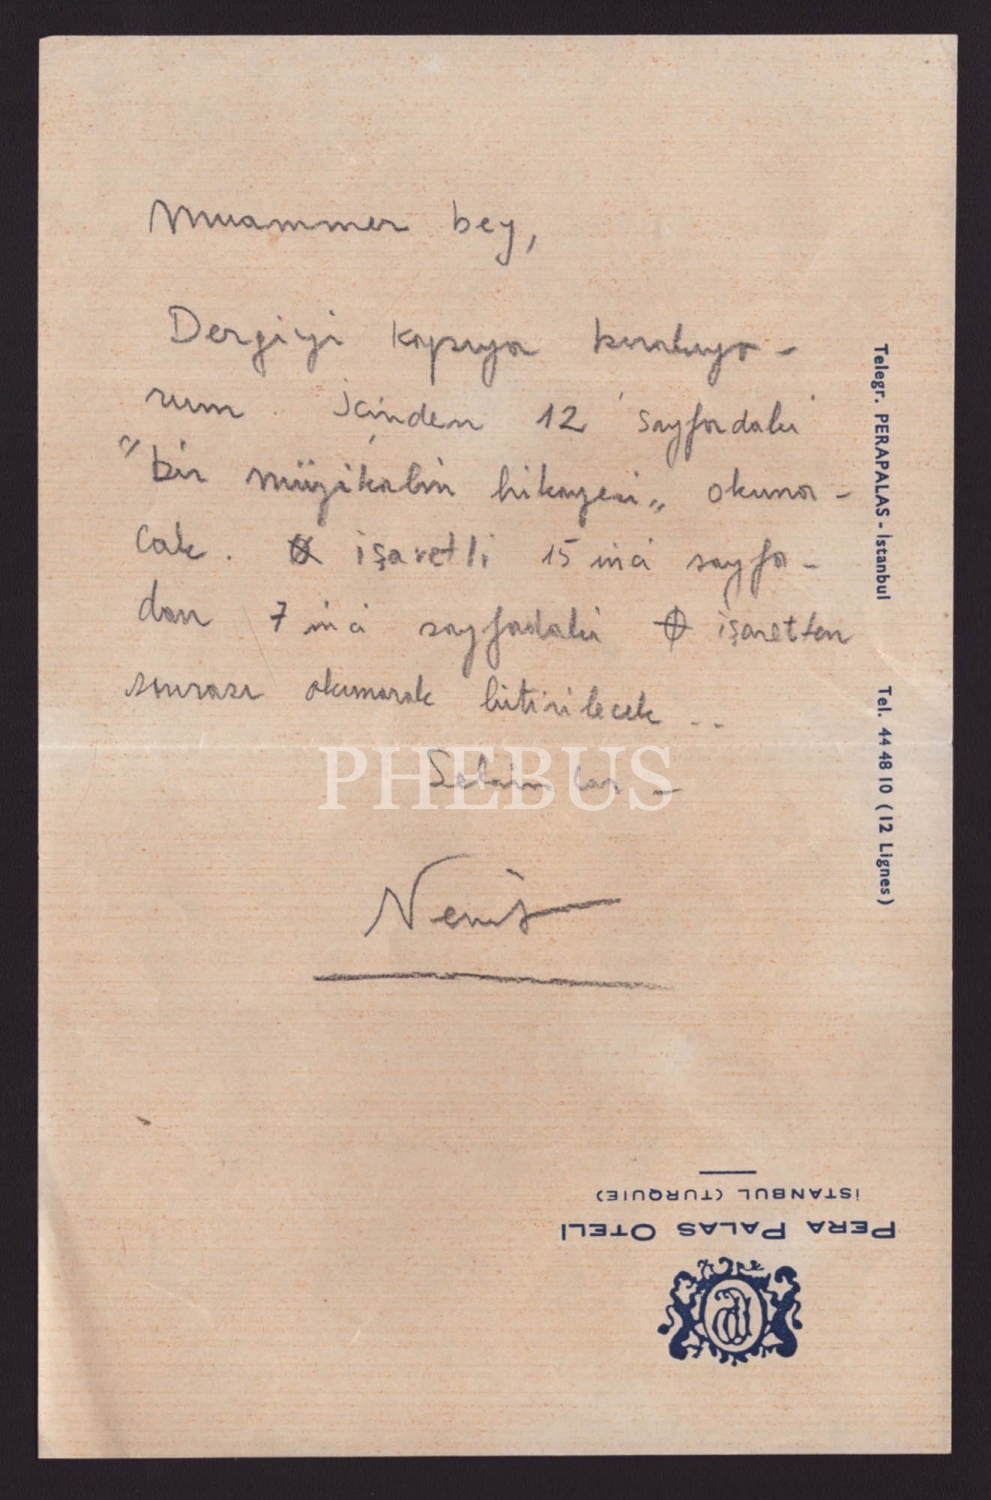 Muammer bey,
Dergiyi kapıya bırakıyo-
rum. İçinden 12 sayfadaki
"bir müzikalin hikayesi„ okuna-
cak. işaretli 15 inci sayfa-
dan 7 inci sayfadaki işaretten
sonrası okunarak bitirilecek ..
Selâmlar -
PHEBUS
Telegr. PERAPALAS - İstanbul
Tel. 44 48 10 (12 Lignes)
PERA PALAS OTELİ
İSTANBUL (TURQUIE)